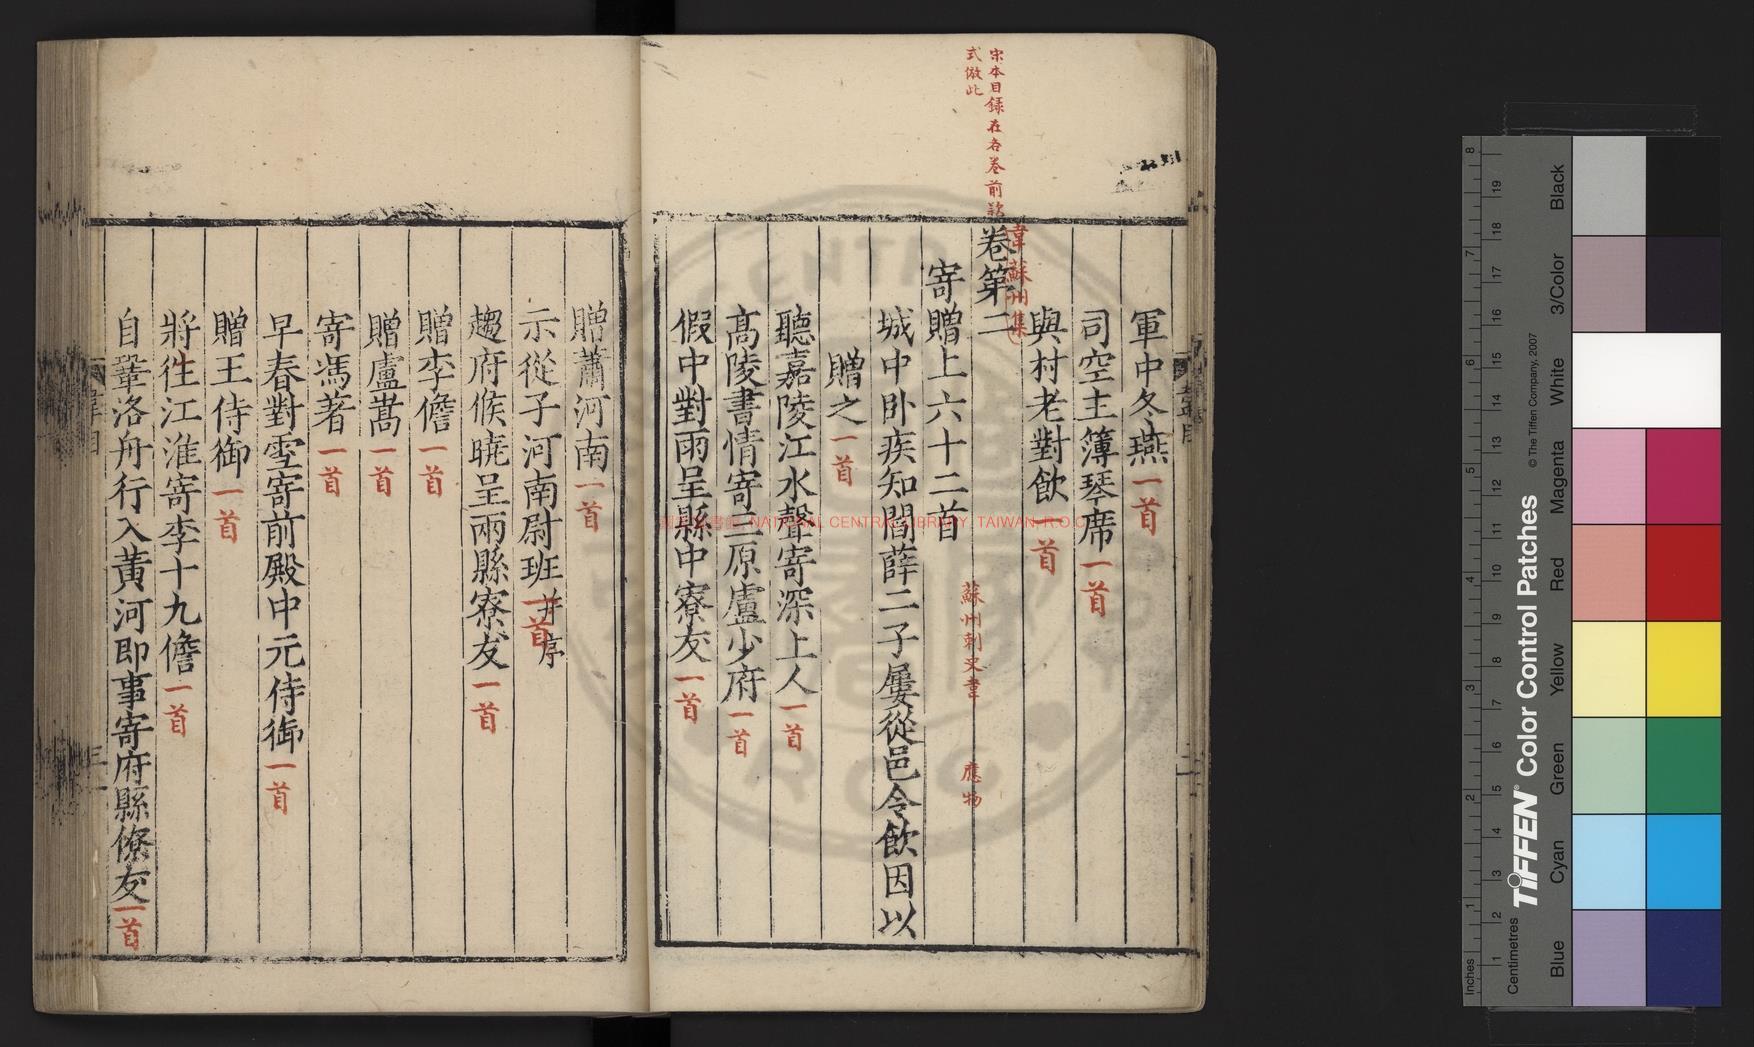 宋本目録在各卷前款
式倣此
軍中冬燕一首
司空主簿琴席一首
與村老對飲一首
韋蘇州集
卷第二
蘇州刺史韋 應物
寄贈上六十二首
城中卧疾知閻薛二子屢從邑令飲因以
贈之一首
聽嘉陵江水聲寄深上人一首
髙陵書情寄三原盧少府一首
假中對雨呈縣中寮友一首
贈蕭河南一首
示從子河南尉班并序一首
趨府候曉呈兩縣寮友一首
贈李儋一首
贈盧嵩一首
寄馮著一首
早春對雪寄前殿中元侍御一首
贈王侍御一首
將往江淮寄李十九儋一首
自鞏洛舟行入黄河即事寄府縣僚友一首
NATIONAL CENTRAL LIBRARY, TAIWAN, R.O.C.
TIFFEN® Color Control Patches
© The Tiffen Company, 2007
Black
3/Color
White
Magenta
Red
Yellow
Green
Cyan
Blue
Inches
1 2 3 4 5 6 7 8
Centimetres
1 2 3 4 5 6 7 8 9 10 11 12 13 14 15 16 17 18 19